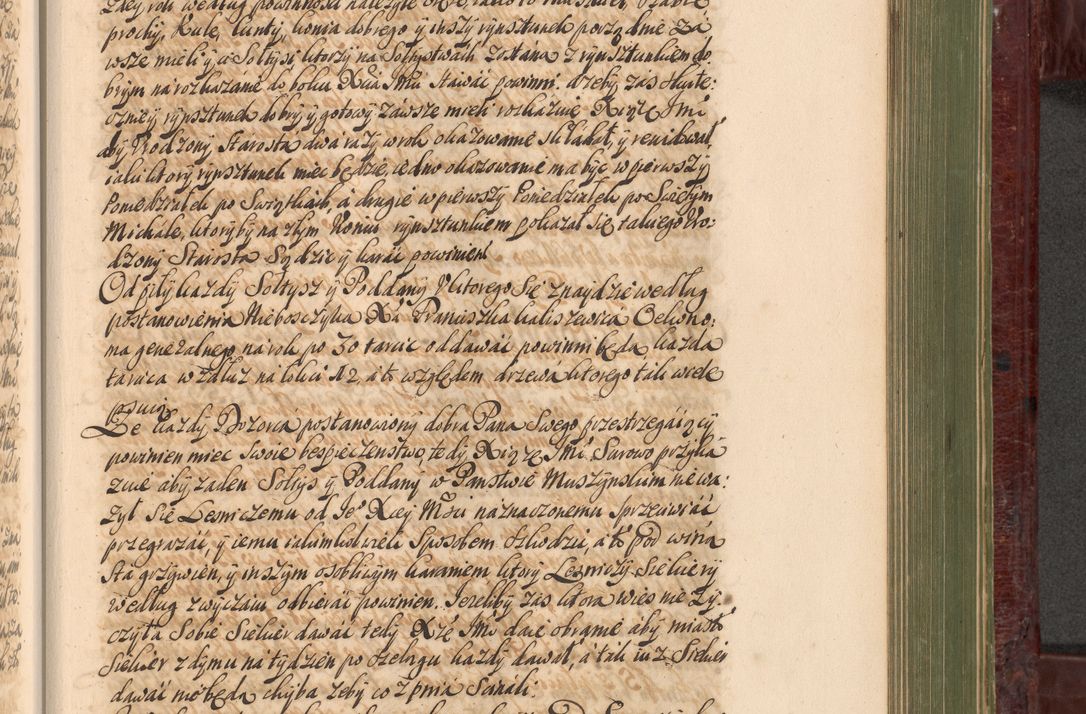 prochy, Kule, Lunty, konia dobrego y inszy rynsztunek porządnie Za
wsze mieli y ci Sołtysi ktorzy na Sołtystwach zostaną z rynsztunkiem do
brym na rozkazanie do boku Xcia Jmci stawać powinni. Ażeby zas skute:
cznieyszy rynsztunek dobry y gotowy zawsze mieli roskazuie Xiąże Jmć
aby Vrodzony Starosta dwa razy w rok okazowanie składał, y rewidował,
iaki ktory rynsztunek miec będzie, iedno okazowanie ma być w pierwszy
Poniedziałek po Swiątkach, a drugie w pierwszy Poniedziałek po Swiętym
Michale, ktoryby na złym Koniu rynsztunkiem pokazał się takiego Vro-
dzony Starosta Sądzic y karać powinien
Od piły każdy Sołtysz y Poddany V ktorego się znaydzie według
postanowienia Nieboszczyka Xa Franciszka Oekono:
ma generalnego, na rok po 30 tarcic oddawać powinni będą, każda
tarcica w dłuż na łokci N2, a to względem drzewa ktorego tak wiele
psuią.
Ze każdy Dozorca postanowiony dobra Pana Swego przestrzegaiący
powinien miec swoie bespieczenstwo, tedy Xiąże Jmć Surowo przyka
zuie aby zaden Sołtys y Poddany w Panstwie Muszynskim nie wa:
zył się Lesniczemu od Jeo Xcey Mści naznaczonemu sprzeciwiać
przegrazać, y iemu iakimkolwiek sposobem szkodzić, a to pod winą
Sta grzywien, y inszym osobliwym karaniem ktory Lesniczy Siekiery
według zwyczaiu odbierać powinien. Jezeliby zas ktora wies nie ży
czyła Sobie Siekier dawać tedy Xże Jmć daie obranie aby miasto
siekier z dymu na tydzien po szelągu każdy dawał, a tak iuż Siekier
dawać nie będą chyba zeby co z pnia Scinali: